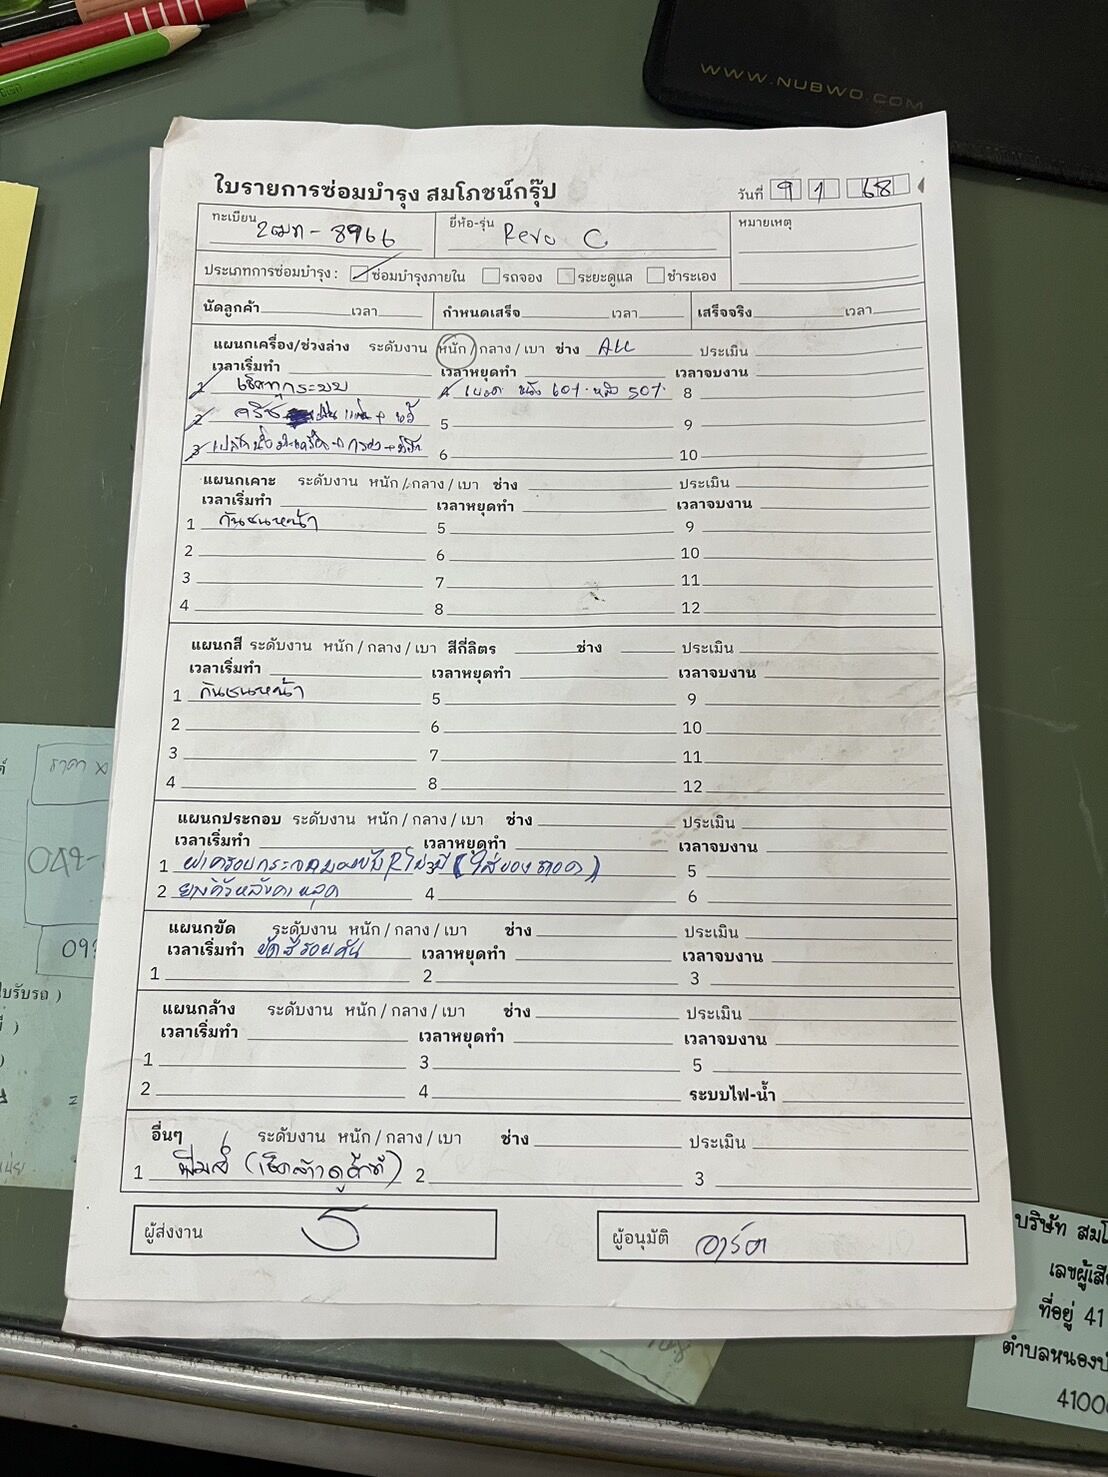 WWW.NUBWO.COM
ใบรายการซ่อมบำรุง สมโภชน์กรุ๊ป
วันที่ 9 1 68
ทะเบียน 2ฒก-8966 ยี่ห้อ-รุ่น Revo C หมายเหตุ
ประเภทการซ่อมบำรุง : ซ่อมบำรุงภายใน รถจอง ระยะดูแล ชำระเอง
นัดลูกค้า เวลา กำหนดเสร็จ เวลา เสร็จจริง เวลา
แผนกเครื่อง/ช่วงล่าง ระดับงาน หนัก / กลาง / เบา ช่าง ALL ประเมิน
เวลาเริ่มทำ เวลาหยุดทำ เวลาจบงาน
1 เช็คทุกระบบ 4 เบรค หน้า 60% หลัง 50% 8
2 ครัช 5 9
3 6 10
แผนกเคาะ ระดับงาน หนัก / กลาง / เบา ช่าง ประเมิน
เวลาเริ่มทำ เวลาหยุดทำ เวลาจบงาน
1 กันชนหน้า 5 9
2 6 10
3 7 11
4 8 12
แผนกสี ระดับงาน หนัก / กลาง / เบา สีกี่ลิตร ช่าง ประเมิน
เวลาเริ่มทำ เวลาหยุดทำ เวลาจบงาน
1 กันชนหน้า 5 9
2 6 10
3 7 11
4 8 12
แผนกประกอบ ระดับงาน หนัก / กลาง / เบา ช่าง ประเมิน
เวลาเริ่มทำ เวลาหยุดทำ เวลาจบงาน
1 ฝาครอบกระจกมองข้าง R ไม่มี (ใส่ของ 3 5
2 ยางคิ้วหลังคาหลุด 4 6
แผนกขัด ระดับงาน หนัก / กลาง / เบา ช่าง ประเมิน
เวลาเริ่มทำ ขัดสีรอบคัน เวลาหยุดทำ เวลาจบงาน
1 2 3
แผนกล้าง ระดับงาน หนัก / กลาง / เบา ช่าง ประเมิน
เวลาเริ่มทำ เวลาหยุดทำ เวลาจบงาน
1 3 5
2 4 ระบบไฟ-น้ำ
อื่นๆ ระดับงาน หนัก / กลาง / เบา ช่าง ประเมิน
1 ฟิมล์ 2 3
ผู้ส่งงาน ผู้อนุมัติ อาร์ต
ราคา
042-
093
ใบรับรถ )
บริษัท สมโ
เลขผู้เสี
ที่อยู่ 41
ตำบลหนองบั
4100